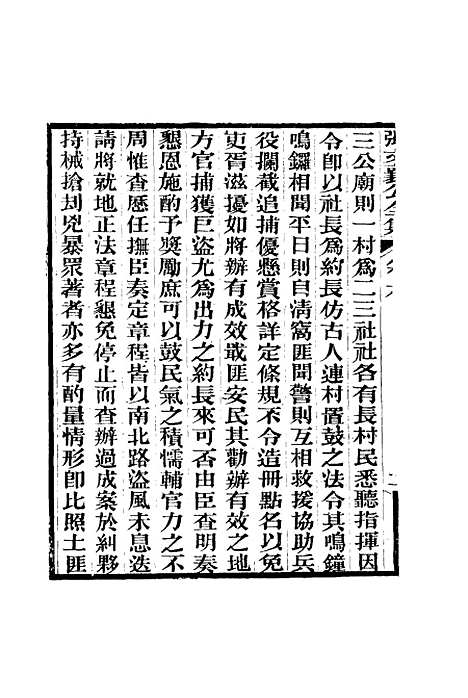 三公廟則一村爲二三社社各有長村民悉聽指揮因
令卽以社長爲約長仿古人連村置鼓之法令其鳴鐘
鳴鑼相聞平日則自清窩匪聞警則互相救援協助兵
役攔截追捕優懸賞格詳定條規不令造冊點名以免
吏胥滋擾如將辦有成效戢匪安民其勸辦有效之地
方官捕獲巨盜尤爲出力之約長來可否由臣查明奏
懇恩施酌予奬勵庶可以鼓民氣之積懦輔官力之不
周惟查歷任撫臣奏定章程皆以南北路盜風未息迭
請將就地正法章程懇免停止而查辦過成案於糾夥
持械搶刼兇暴眾著者亦多有酌量情形卽比照土匪